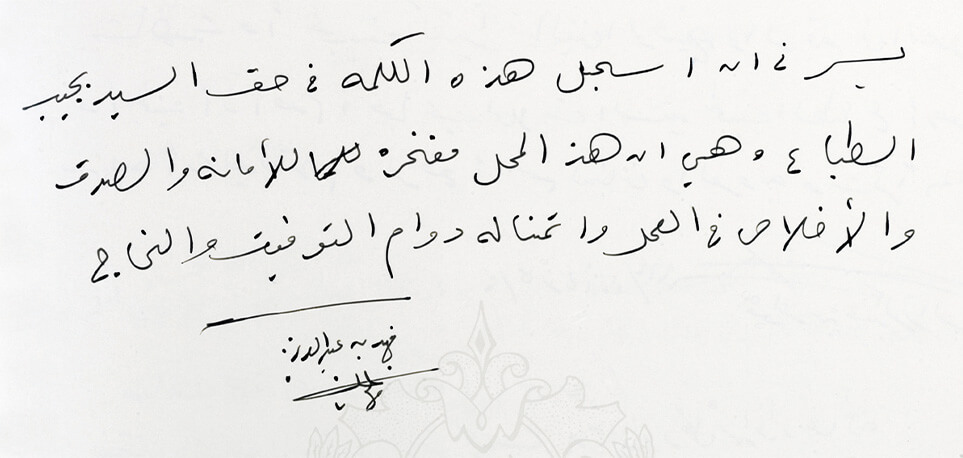 يسرني ان اسجل هذه الكلمه في حق السيد نجيب
الطباع وهي ان هذ المحل مفخره للأمانه والصدق
والأخلاص في العمل واتمنا له دوام التوفيق والنجاح
فهد بن عبدالعزيز